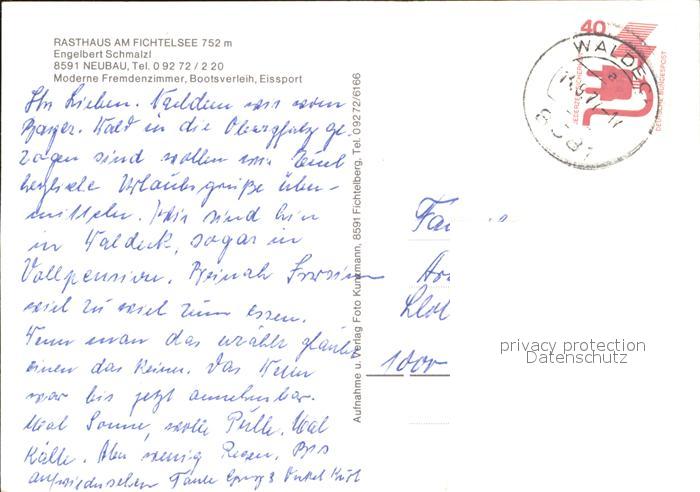 RASTHAUS AM FICHTELSEE 752 m
Engelbert Schmalzl
8591 NEUBAU, Tel. 0 92 72 / 2 20
Moderne Fremdenzimmer, Bootsverleih, Eissport
Ihr Lieben. Nachdem wir vom
Bayer. Wald in die Oberpfalz ge-
zogen sind wollen wir Euch
herzliche Urlaubsgrüße über-
mitteln. Wir sind hier
in Waldeck, sogar in
Vollpension. Beinah
viel zu viel zum essen.
Wenn man das erzählt glaubt
einem das keiner. Das Wetter
war bis jetzt annehmbar.
Mal Sonne, Mal
Kälte. Aber wenig Regen. Bis
aufwiedersehen Tante Onkel
Aufnahme u. Verlag Foto Kunzmann, 8591 Fichtelberg, Tel. 0 92 72/6166
40
JEDERZEIT SICHERHEIT
DEUTSCHE BUNDESPOST
WALDECK
Fa
1000
privacy protection
Datenschutz